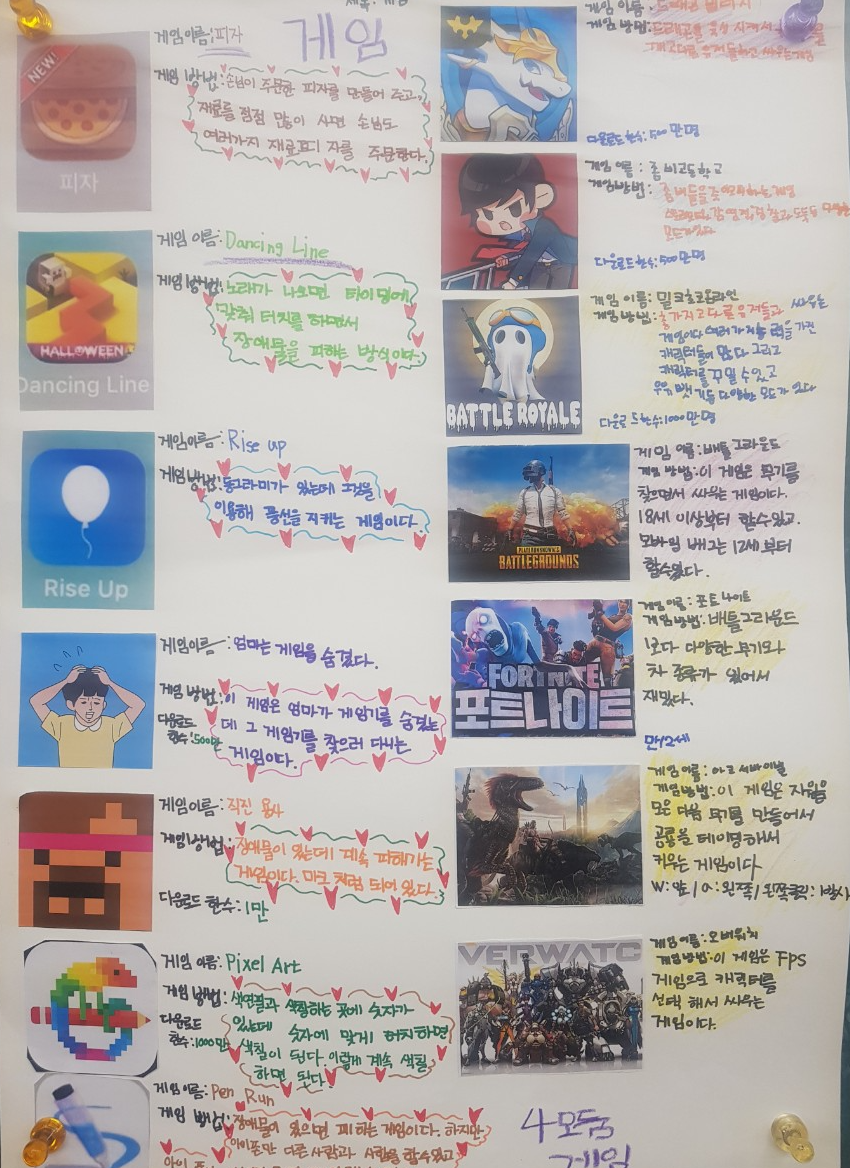 게임
게임이름: 피자
게임방법: 손님이 주문한 피자를 만들어 주고,
재료를 점점 많이 사면 손님도
여러가지 재료피자를 주문한다.
NEW!
피자
게임 이름: Dancing Line
게임방법: 노래가 나오면 타이밍에
맞춰 터치를 하면서
장애물을 피하는 방식이다.
HALLOWEEN
Dancing Line
게임이름: Rise up
게임방법: 동그라미가 있는데 그것을
이용해 풍선을 지키는 게임이다.
Rise Up
게임이름: 엄마는 게임을 숨겼다.
게임 방법: 이 게임은 엄마가 게임기를 숨겼는
데 그 게임기를 찾으러 다니는
게임이다.
다운로드
횟수: 500만
게임이름: 직진 용사
게임방법: 장애물이 있는데 계속 피해가는
게임이다. 마크 처럼 되어 있다.
다운로드 횟수: 1만
게임 이름: Pixel Art
게임 방법: 색연필과 색칠하는 곳에 숫자가
있는데 숫자에 맞게 터치하면
색칠이 된다. 이렇게 계속 색칠
하면 된다.
다운로드
횟수: 1000만
게임이름: Pen Run
게임 방법: 장애물이 있으면 피하는 게임이다. 하지만
아이폰만 다른 사람과 시합을 할수있고
게임 이름:
게임 방법: 드래곤을
다운로드 횟수: 500만명
게임 이름: 좀비고등학교
게임방법: 좀비들을
모드가있다
다운로드횟수: 500만명
게임 이름: 밀크초코온라인
게임 방법: 총 가지고 다른 유저들과 싸우는
게임이다 여러가지능력을 가진
캐릭터들이 많다 그리고
캐릭터를 꾸밀 수있고
다양한 모드가 있다
다운로드횟수: 1000만명
BATTLE ROYALE
게임 이름: 배틀그라운드
게임 방법: 이 게임은 무기를
찾으면서 싸우는 게임이다.
18세 이상부터 할수있고.
모바일 배그는 12세부터
할수있다.
PLAYERUNKNOWN'S
BATTLEGROUNDS
게임이름: 포트나이트
게임방법: 배틀그라운드
보다 다양한 무기와
차 종류가 있어서
재밌다.
만12세
FORTNITE
포트나이트
게임이름: 아크 서바이벌
게임방법: 이 게임은 자원을
모은 다음 무기를 만들어서
공룡을 테이밍해서
키우는 게임이다
W: 앞 / a: 왼쪽 / 왼쪽클릭: 1발사
게임이름: 오버워치
게임방법: 이 게임은 FPS
게임으로 캐릭터를
선택 해서 싸우는
게임이다.
VERWATC
4모둠
게임